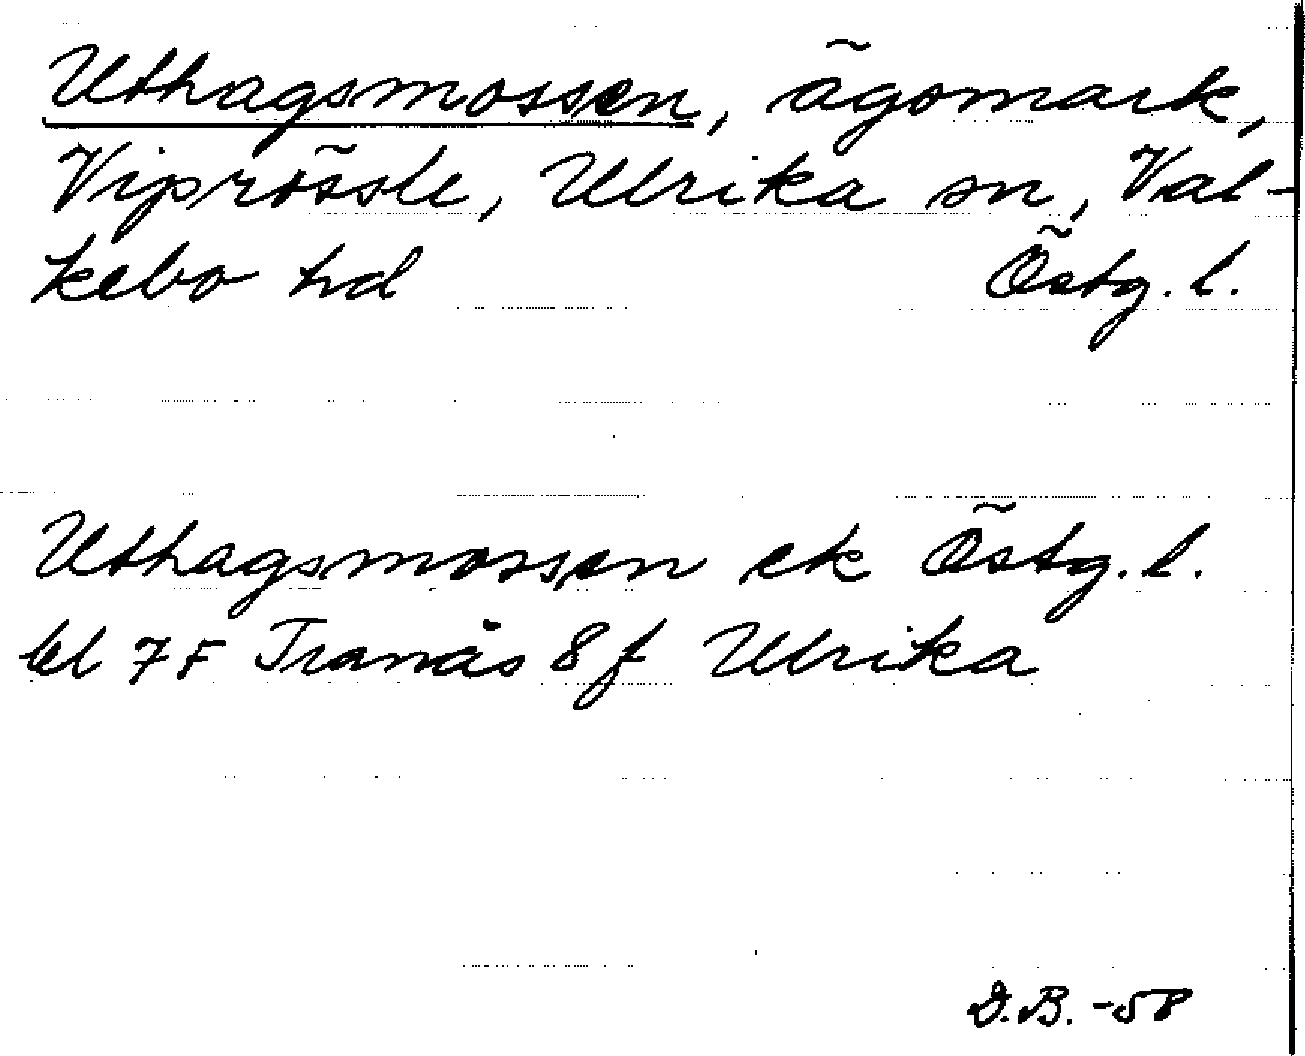 Uthagsmossen, ägomark,
Viprössle, Ulrika sn, Val-
kebo hd Östg. l.
Uthagsmossen ek Östg. l.
bl 7F Tranås 8f Ulrika
D.B. -58